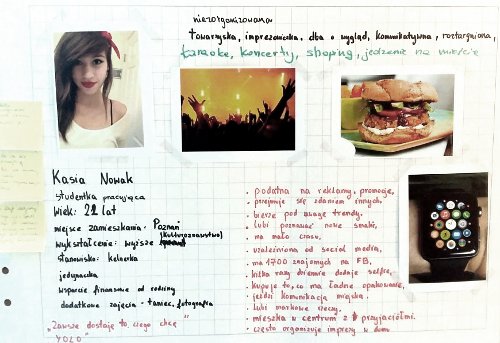 niezorganizowana
towarzyska, imprezowiczka, dba o wygląd, komunikatywna, roztargniona,
karaoke, koncerty, shoping, jedzenie na mieście
Kasia Nowak
studentka pracująca
Wiek: 22 lat
miejsce zamieszkania: Poznań
(kulturoznawstwo)
wykształcenie: wyższe
stanowisko: kelnerka
jedynaczka
wsparcie finansowe od rodziny
dodatkowe zajęcia - taniec, fotografia
"Zawsze dostaję to, czego chcę"
YOLO
• podatna na reklamy, promocje,
• przejmuje się zdaniem innych,
• bierze pod uwagę trendy,
• lubi poznawać nowe smaki,
• ma mało czasu,
• uzależniona od social media,
• ma 1700 znajomych na FB,
• kilka razy dziennie dodaje selfie,
• kupuje to, co ma ładne opakowanie,
• jeździ komunikacją miejską
• lubi markowe rzeczy,
• mieszka w centrum z przyjaciółmi
• często organizuje imprezy w domu